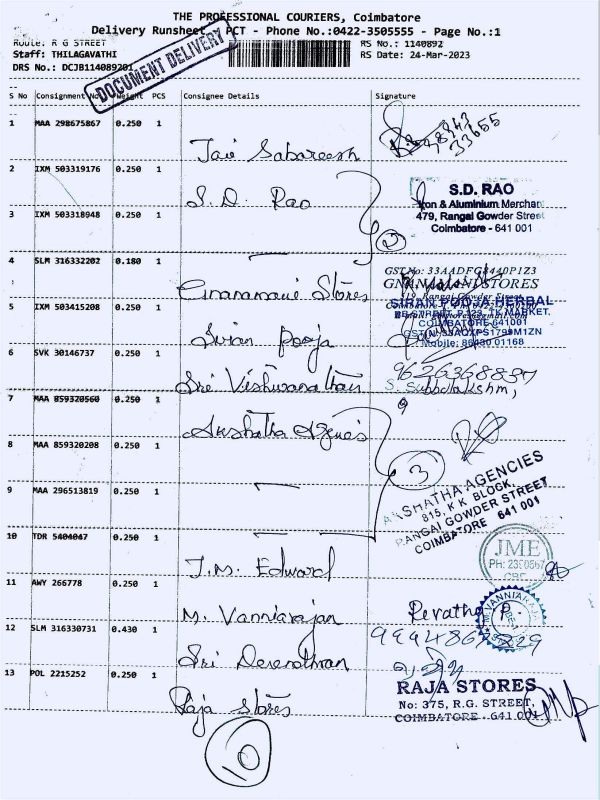 THE PROFESSIONAL COURIERS, Coimbatore
Delivery Runsheet PCT - Phone No.:0422-3505555 - Page No.:1
Route: R G STREET
RS No.: 1140892
Staff: THILAGAVATHI
RS Date: 24-Mar-2023
DRS No.: DCJB114089201
DOCUMENT DELIVERY
S No Consignment No Weight PCS Consignee Details Signature
1 MAA 298675867 0.250 1
Jai Sabareesh
2 IXM 503319176 0.250 1
S. D. Rao
S.D. RAO
Iron & Aluminium Merchant
479, Rangai Gowder Street
Coimbatore - 641 001
3 IXM 503318948 0.250 1
2
4 SLM 316332202 0.180 1
Gnanamani Stores
GST No: 33AADFG8440P1Z3
GNANAMANI STORES
Rangai Gowder Street
5 IXM 503415208 0.250 1
Siran Pooja
SIRAN POOJA HERBAL
TK MARKET,
COIMBATORE-641001
Mobile: 86430 01168
6 SVK 30146737 0.250 1
Sri Vishwanathan
9626368837
S. Subbulakshmi
7 MAA 859320560 0.250 1
Akshatha Agencies
8 MAA 859320208 0.250 1
3
AKSHATHA AGENCIES
815, K.K. BLOCK,
RANGAI GOWDER STREET
COIMBATORE 641 001
9 MAA 296513819 0.250 1
10 TDR 5404047 0.250 1
J.M. Edward
JME
CBE
11 AWY 266778 0.250 1
M. Vanniarajan
Revathy P.
12 SLM 316330731 0.430 1
Sri Devendhran
13 POL 2215252 0.250 1
Raja Stores
RAJA STORES
No: 375, R.G. STREET,
COIMBATORE - 641 001
10